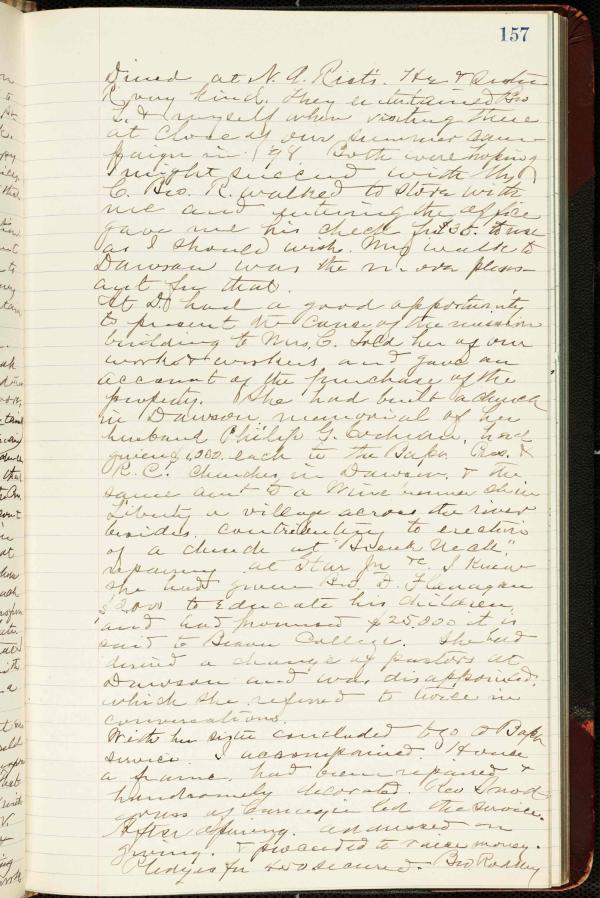 157
Dined at N. A. Rist's. He & 
R very kind. They entertained Bro
S. & myself when visiting there
at close of our summer cam-
paign in '98 Both were hoping
I might succeed with Mrs
C. Bro. R. walked to store with
me and entering the office
gave me his check for $30. to use
as I should wish. My walk to
Dawson was the more pleas-
ant for that.
At D. I had a good opportunity
to present the cause of the mission
building to Mrs. C. Told her of our
work & workers and gave an
account of the purchase of the
property. She had built a church
in Dawson memorial of her
husband Philip G. Cochran, had
given 1,000 each to the Bap. &
R. C. Churches in Dawson & the
same amt to a 
Liberty a village across the river
besides contributing to erection
of a church at "Break Neck",
repairing at Star Jn &c. I knew
she had given Bro D. Flanagan
$2,000 to educate his children,
and had promised $25,000 it is
said to Beaver College. She had
desired a change of pastors at
Dawson and was disappointed,
which she referred to twice in
conversations.
With her sister concluded to go to Bap.
service. I accompanied. House
a frame, had been repaired &
handsomely decorated. Rev Snod
grass of Carnegie led the service.
After opening, addressed on
giving. & proceeded to raise money.
Pledges for 400 secured. Bro